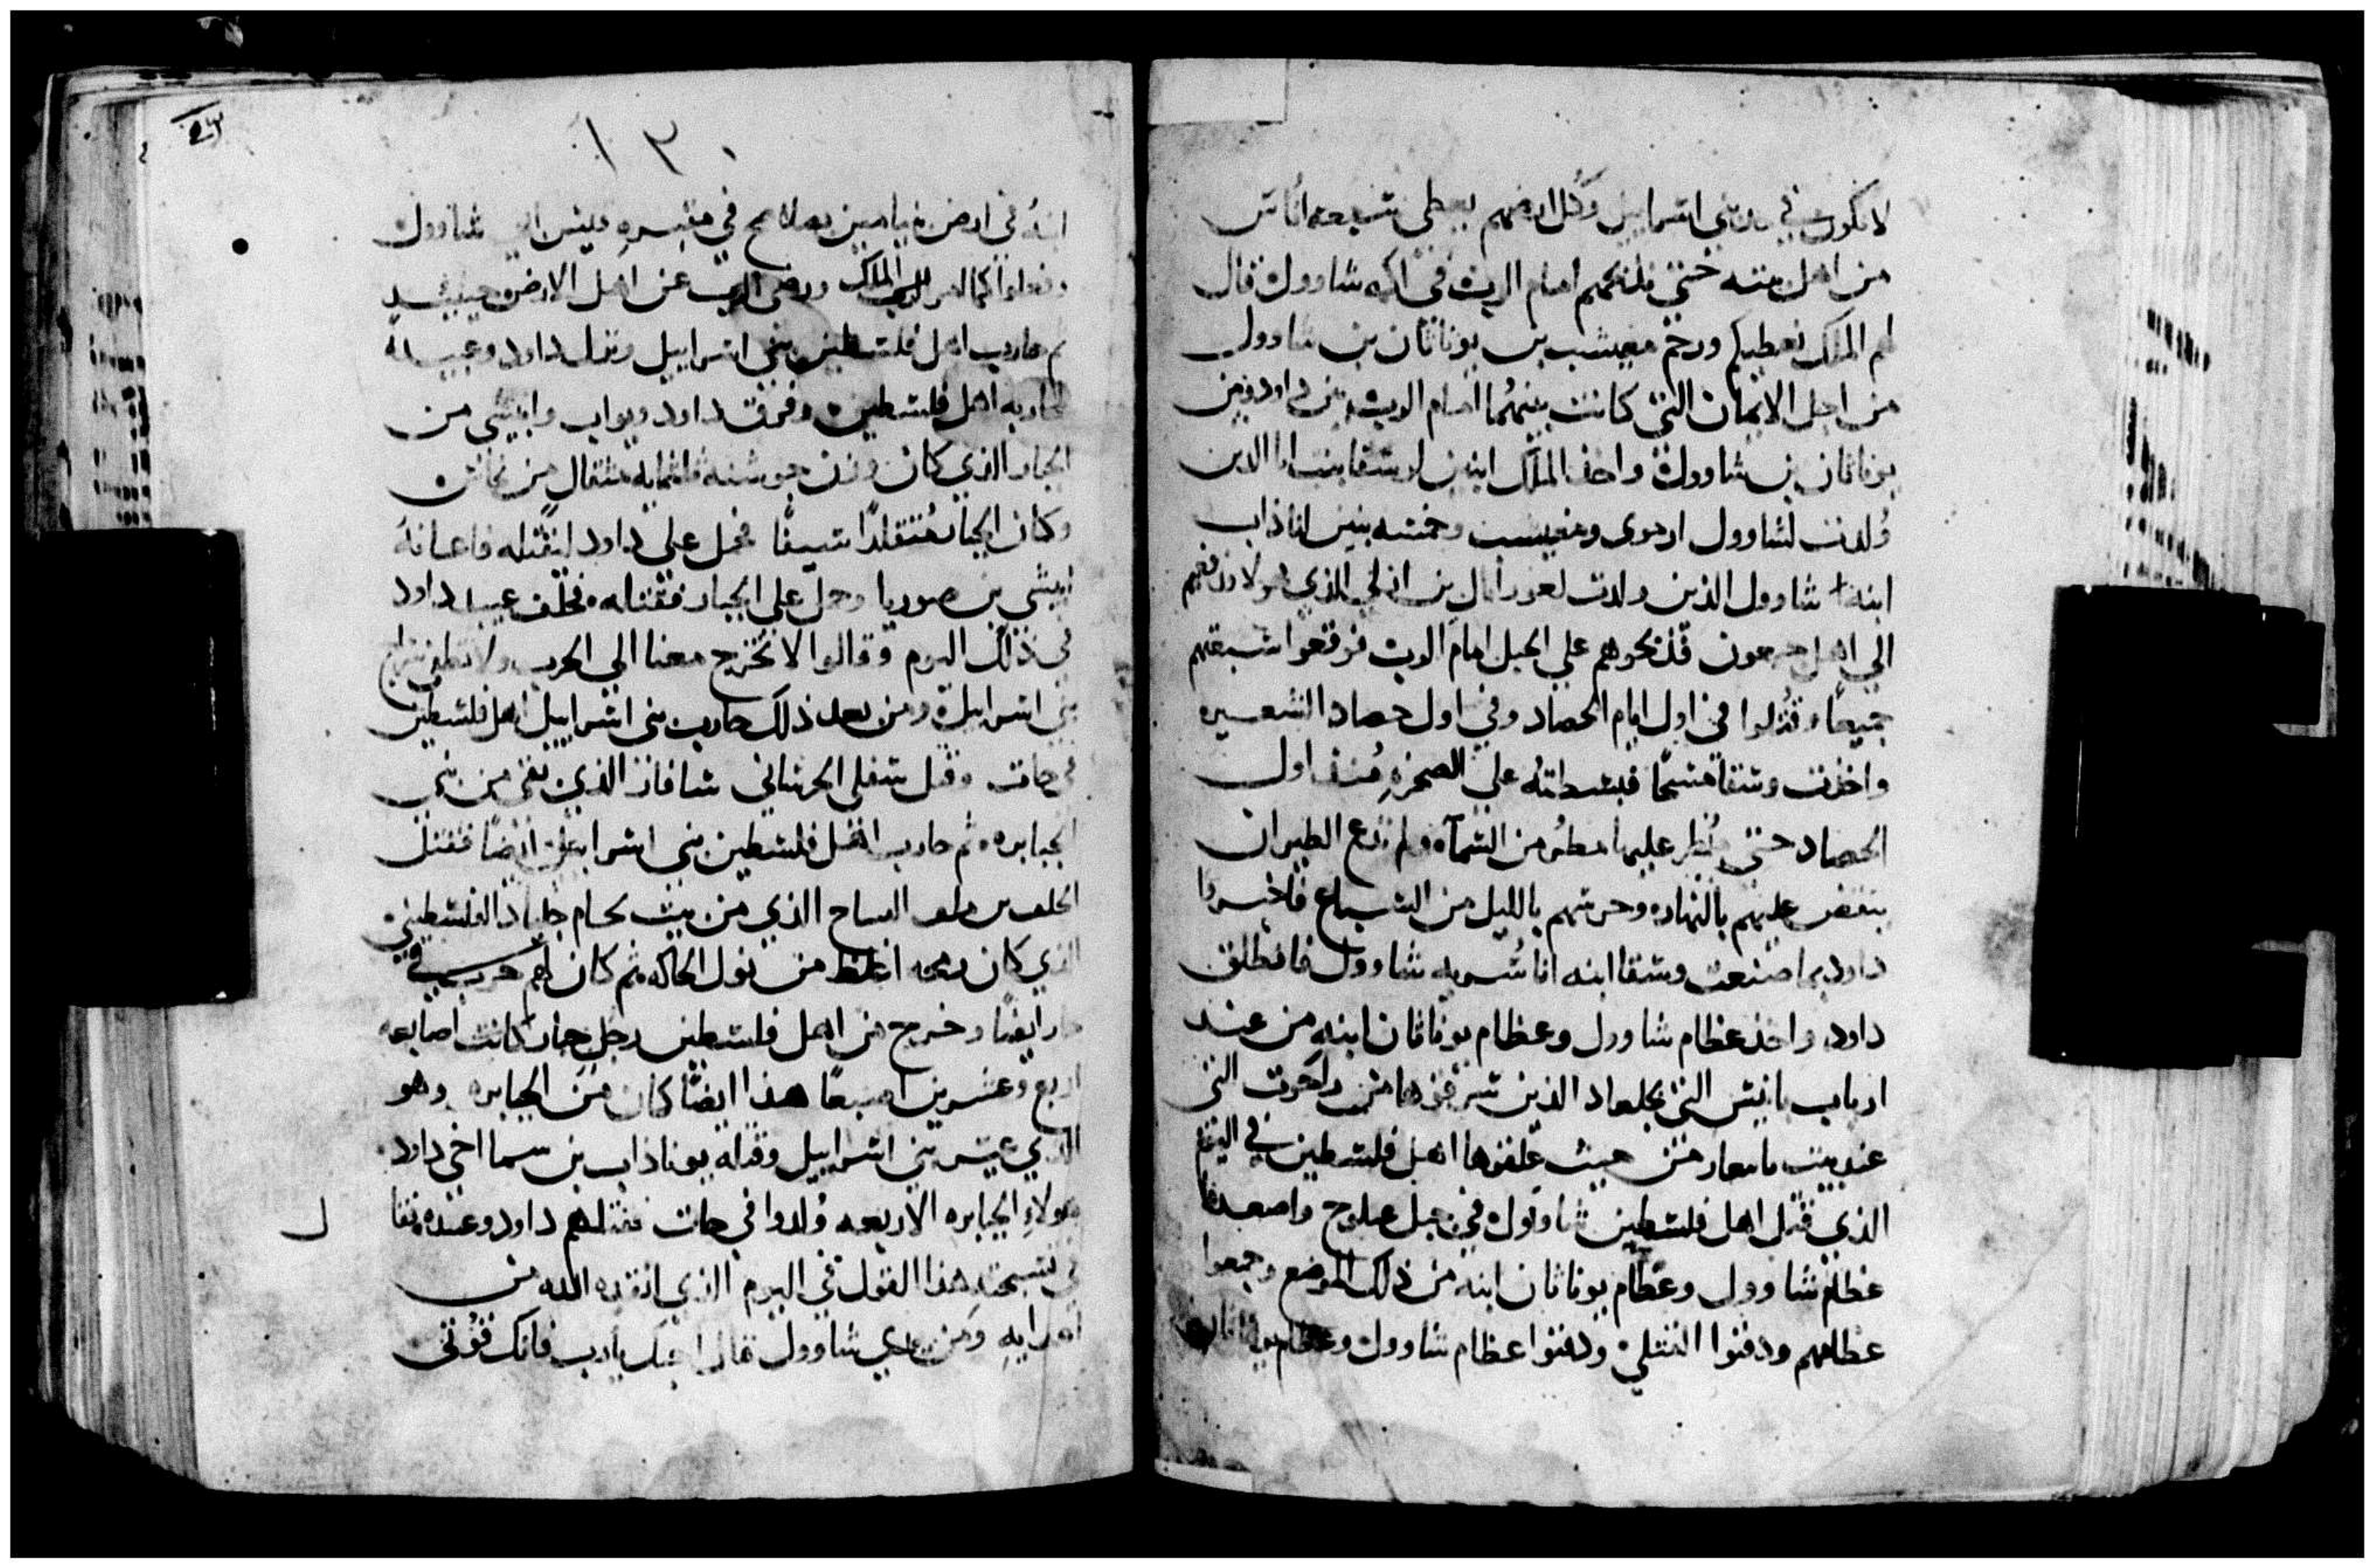 لا نكون في بني اسراييل وكل ارضهم يعطي سبعه اناس
من اهل بيته حتي نذبحهم امام الرب في اكمه شاوول قال
لهم الملك نعطيكم ورحم مفيبشت بن يوناثان بن شاوول
من اجل الايمان التي كانت بينهما امام الرب بين داود وبين
يوناثان بن شاوول واخذ الملك ابني لرسقا بنت الذين
ولدت لشاوول ارموي ومفيبست وخمسه بنين
ابنة شاوول الذين ولدت بن الذي
الي اهل جبعون فذبحوهم علي الجبل امام الرب فوقعوا سبعتهم
جميعا وقتلوا في اول ايام الحصاد وفي اول حصاد الشعير
واخذت رسقا مسحا فبسطته علي الصخره منذ اول
الحصاد حتي مطر عليها مطر من السماء ولم تدع الطيران
ينقض عليهم بالنهار وحرستهم بالليل من السباع فاخبروا
داود بما صنعت رسقا ابنه انا سريه شاوول فانطلق
داود واخذ عظام شاوول وعظام يوناثان ابنه من عند
ارباب يابيس التي بجلعاد الذين سرقوها من التي
عند بيت ياسان من حيث علقوها اهل فلسطين في اليوم
الذي قتل اهل فلسطين شاوول في جبل جلبوح واصعدوا
عظام شاوول وعظام يوناثان ابنه من ذلك الموضع وجمعوا
عظامهم ودفنوا القتلي ودفنوا عظام شاوول وعظام يوناثان
١٢٠
ابنه في ارض بنيامين بصلاح في مقبره قيش ابي شاوول
وفعلوا كما امر الملك ورضي الرب عن اهل الارض حينيذ
ثم حارب اهل فلسطين بني اسراييل ونزل داود وعبيده
لمحاربه اهل فلسطين وفرق داود ويواب وابيشي من
الجبار الذي كان وزن جوشنه ثلثمايه مثقال من نحاس
وكان الجبار متقلدا سيفا فحمل علي داود ليقتله فاعانه
ابيشي بن صوريا وحمل علي الجبار فقتله فحلف عبيد داود
في ذلك اليوم وقالوا لا تخرج معنا الي الحرب ولا تطفي سراج
بني اسراييل ومن بعد ذلك حارب بني اسراييل اهل فلسطين
في جات وقتل سفلي شافان الذي بقي من بني
الجبابره ثم حارب اهل فلسطين بني اسراييل ايضا فقتل
الذي من بيت لحام جلياد الفلسطيني
الذي كان رمحه اغلظ من نول الحاكه ثم كان لهم حرب في
ايضا وخرج من اهل فلسطين رجل جبار كانت اصابعه
اربع وعشرين اصبعا هذا ايضا كان من الجبابره وهو
الذي عير بني اسراييل وقتله يوناذاب بن سما اخي داود
هولاء الجبابره الاربعه ولدوا في جات فقتلهم داود وعبيده
في تسبحته هذا القول في اليوم الذي انقذه الله من
اعدايه ومن يدي شاوول فقال احبك يا رب فانك قوتي